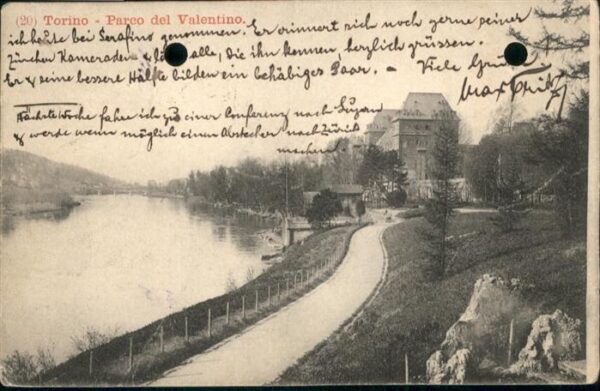 (20) Torino - Parco del Valentino.
ich heute bei Serafino genommen. Er erinnert sich noch gerne seiner
Zürcher Kameraden & lässt alle, die ihn kennen, herzlich grüssen.
Er & seine bessere Hälfte bilden ein behäbiges Paar. - Viele Grüsse
Max Fritz
Nächste Woche fahre ich zu einer Conferenz nach Luzern
& werde wenn möglich einen Abstecher nach Zürich
machen.